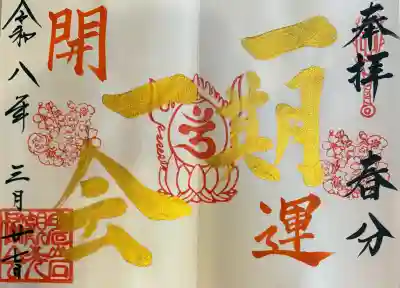 奉拝
春分
一期
一会
開運
令和八年
三月廿日